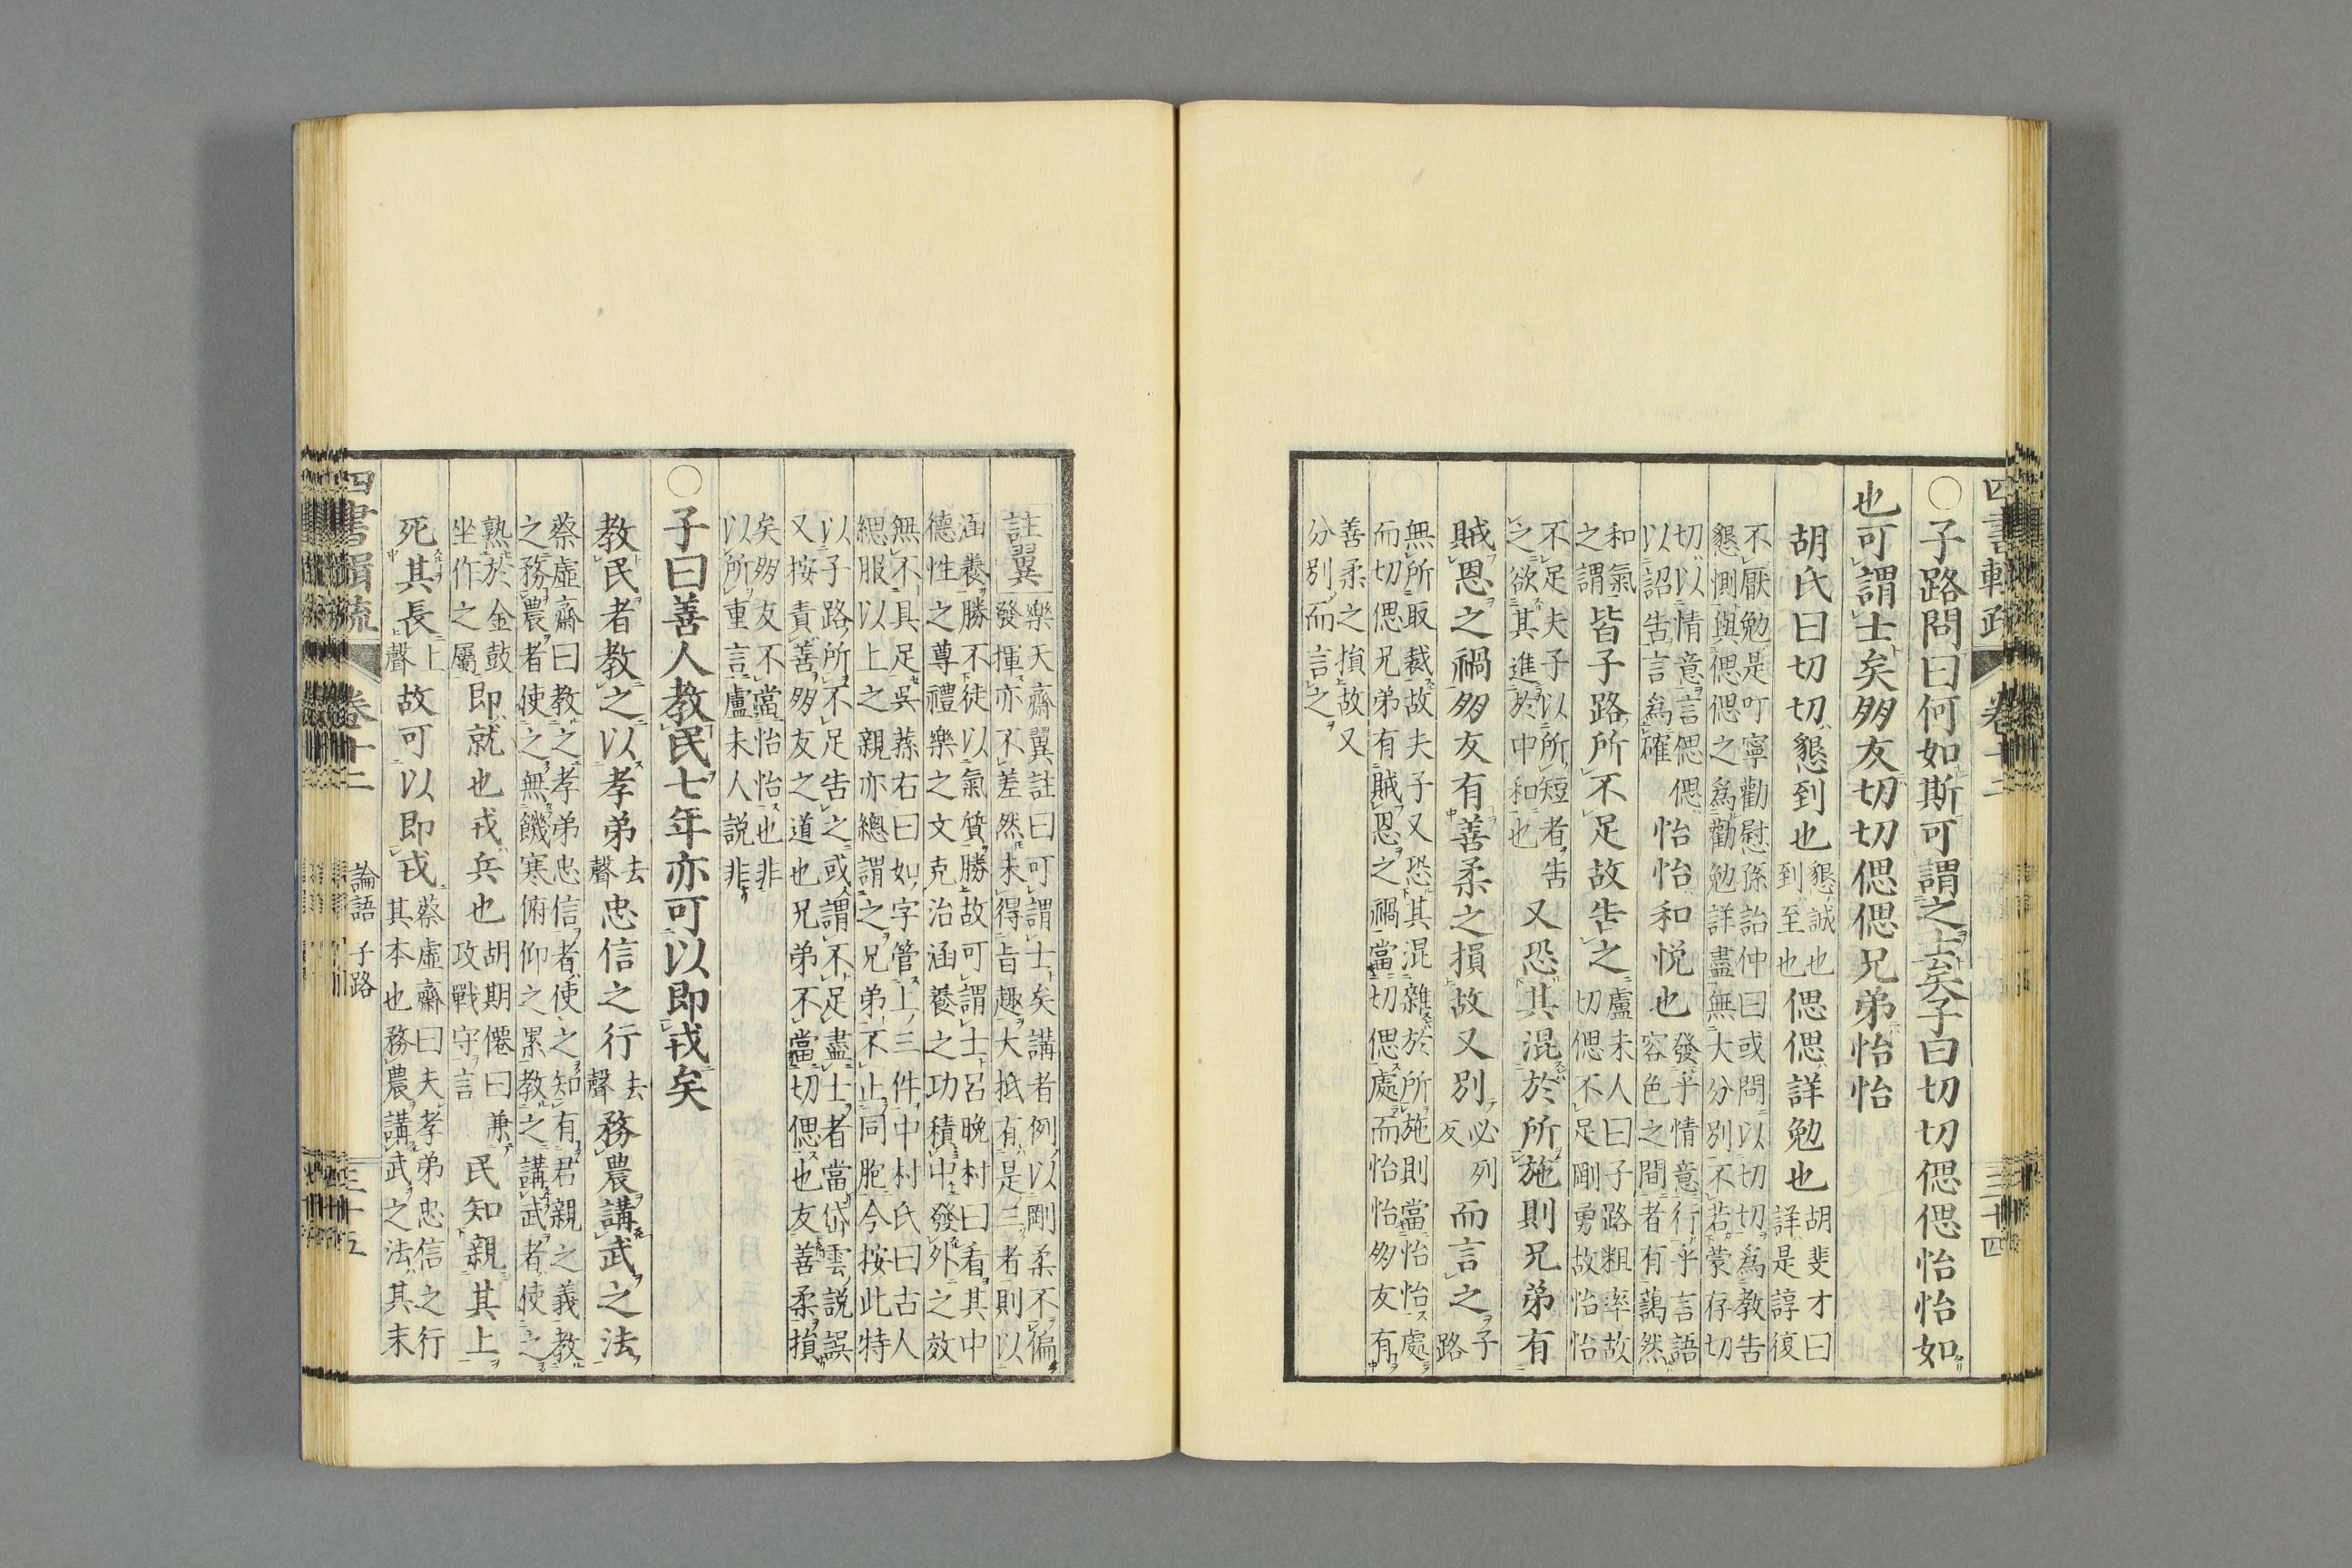 四書輯疏 卷十二 三十四
○子路問曰何如斯可謂之士矣子曰切切偲偲怡怡如
也可謂士矣朋友切切偲偲兄弟怡怡
胡氏曰切切懇到也懇誠也到至也偲偲詳勉也胡斐才曰詳是諄復
不厭勉是叮寧勸慰孫詒仲曰或問以切切爲教告
懇惻與偲偲之爲勸勉詳盡無大分別不若蒙存切
切以情意言偲偲
以詔告言爲確怡怡和悅也發乎情意行乎言語容色之間者有藹然
和氣之謂皆子路所不足故告之盧未人曰子路粗率故切偲不足剛勇故怡怡
不足夫子以所短者告
之欲其進於中和也又恐其混於所施則兄弟有
賊恩之禍朋友有善柔之損故又別必列反而言之子路
無所取裁故夫子又恐其混雜於所施則當怡怡處
而切偲兄弟有賊恩之禍當切偲處而怡怡朋友有
善柔之損故又
分別而言之
註翼樂天齋翼註曰可謂士矣講者例以剛柔不偏
發揮亦不差然未得旨趣大抵有是三者則以
涵養勝不徒以氣質勝故可謂士呂晚村曰看其中
德性之尊禮樂之文克治涵養之功積中發外之效
無不具足吳蓀右曰如字管上三件中村氏曰古人
緦服以上之親亦總謂之兄弟不止同胞今按此特
以子路所不足告之或謂不足盡士者當岱雲說誤
又按責善朋友之道也兄弟不當切偲也友善柔損
矣朋友不當怡怡也非
以所重言盧未人說非
○子曰善人教民七年亦可以即戎矣
教民者教之以孝弟去聲忠信之行去聲務農講武之法
蔡虛齋曰教之孝弟忠信者使之知有君親之義教
之務農者使之無饑寒俯仰之累教之講武者使之
熟於金鼓
坐作之屬即就也戎兵也胡期僊曰兼攻戰守言民知親其上
死其長上聲故可以即戎蔡虛齋曰夫孝弟忠信之行其本也務農講武之法其末
四書輯疏 卷十二 論語 子路 三十五